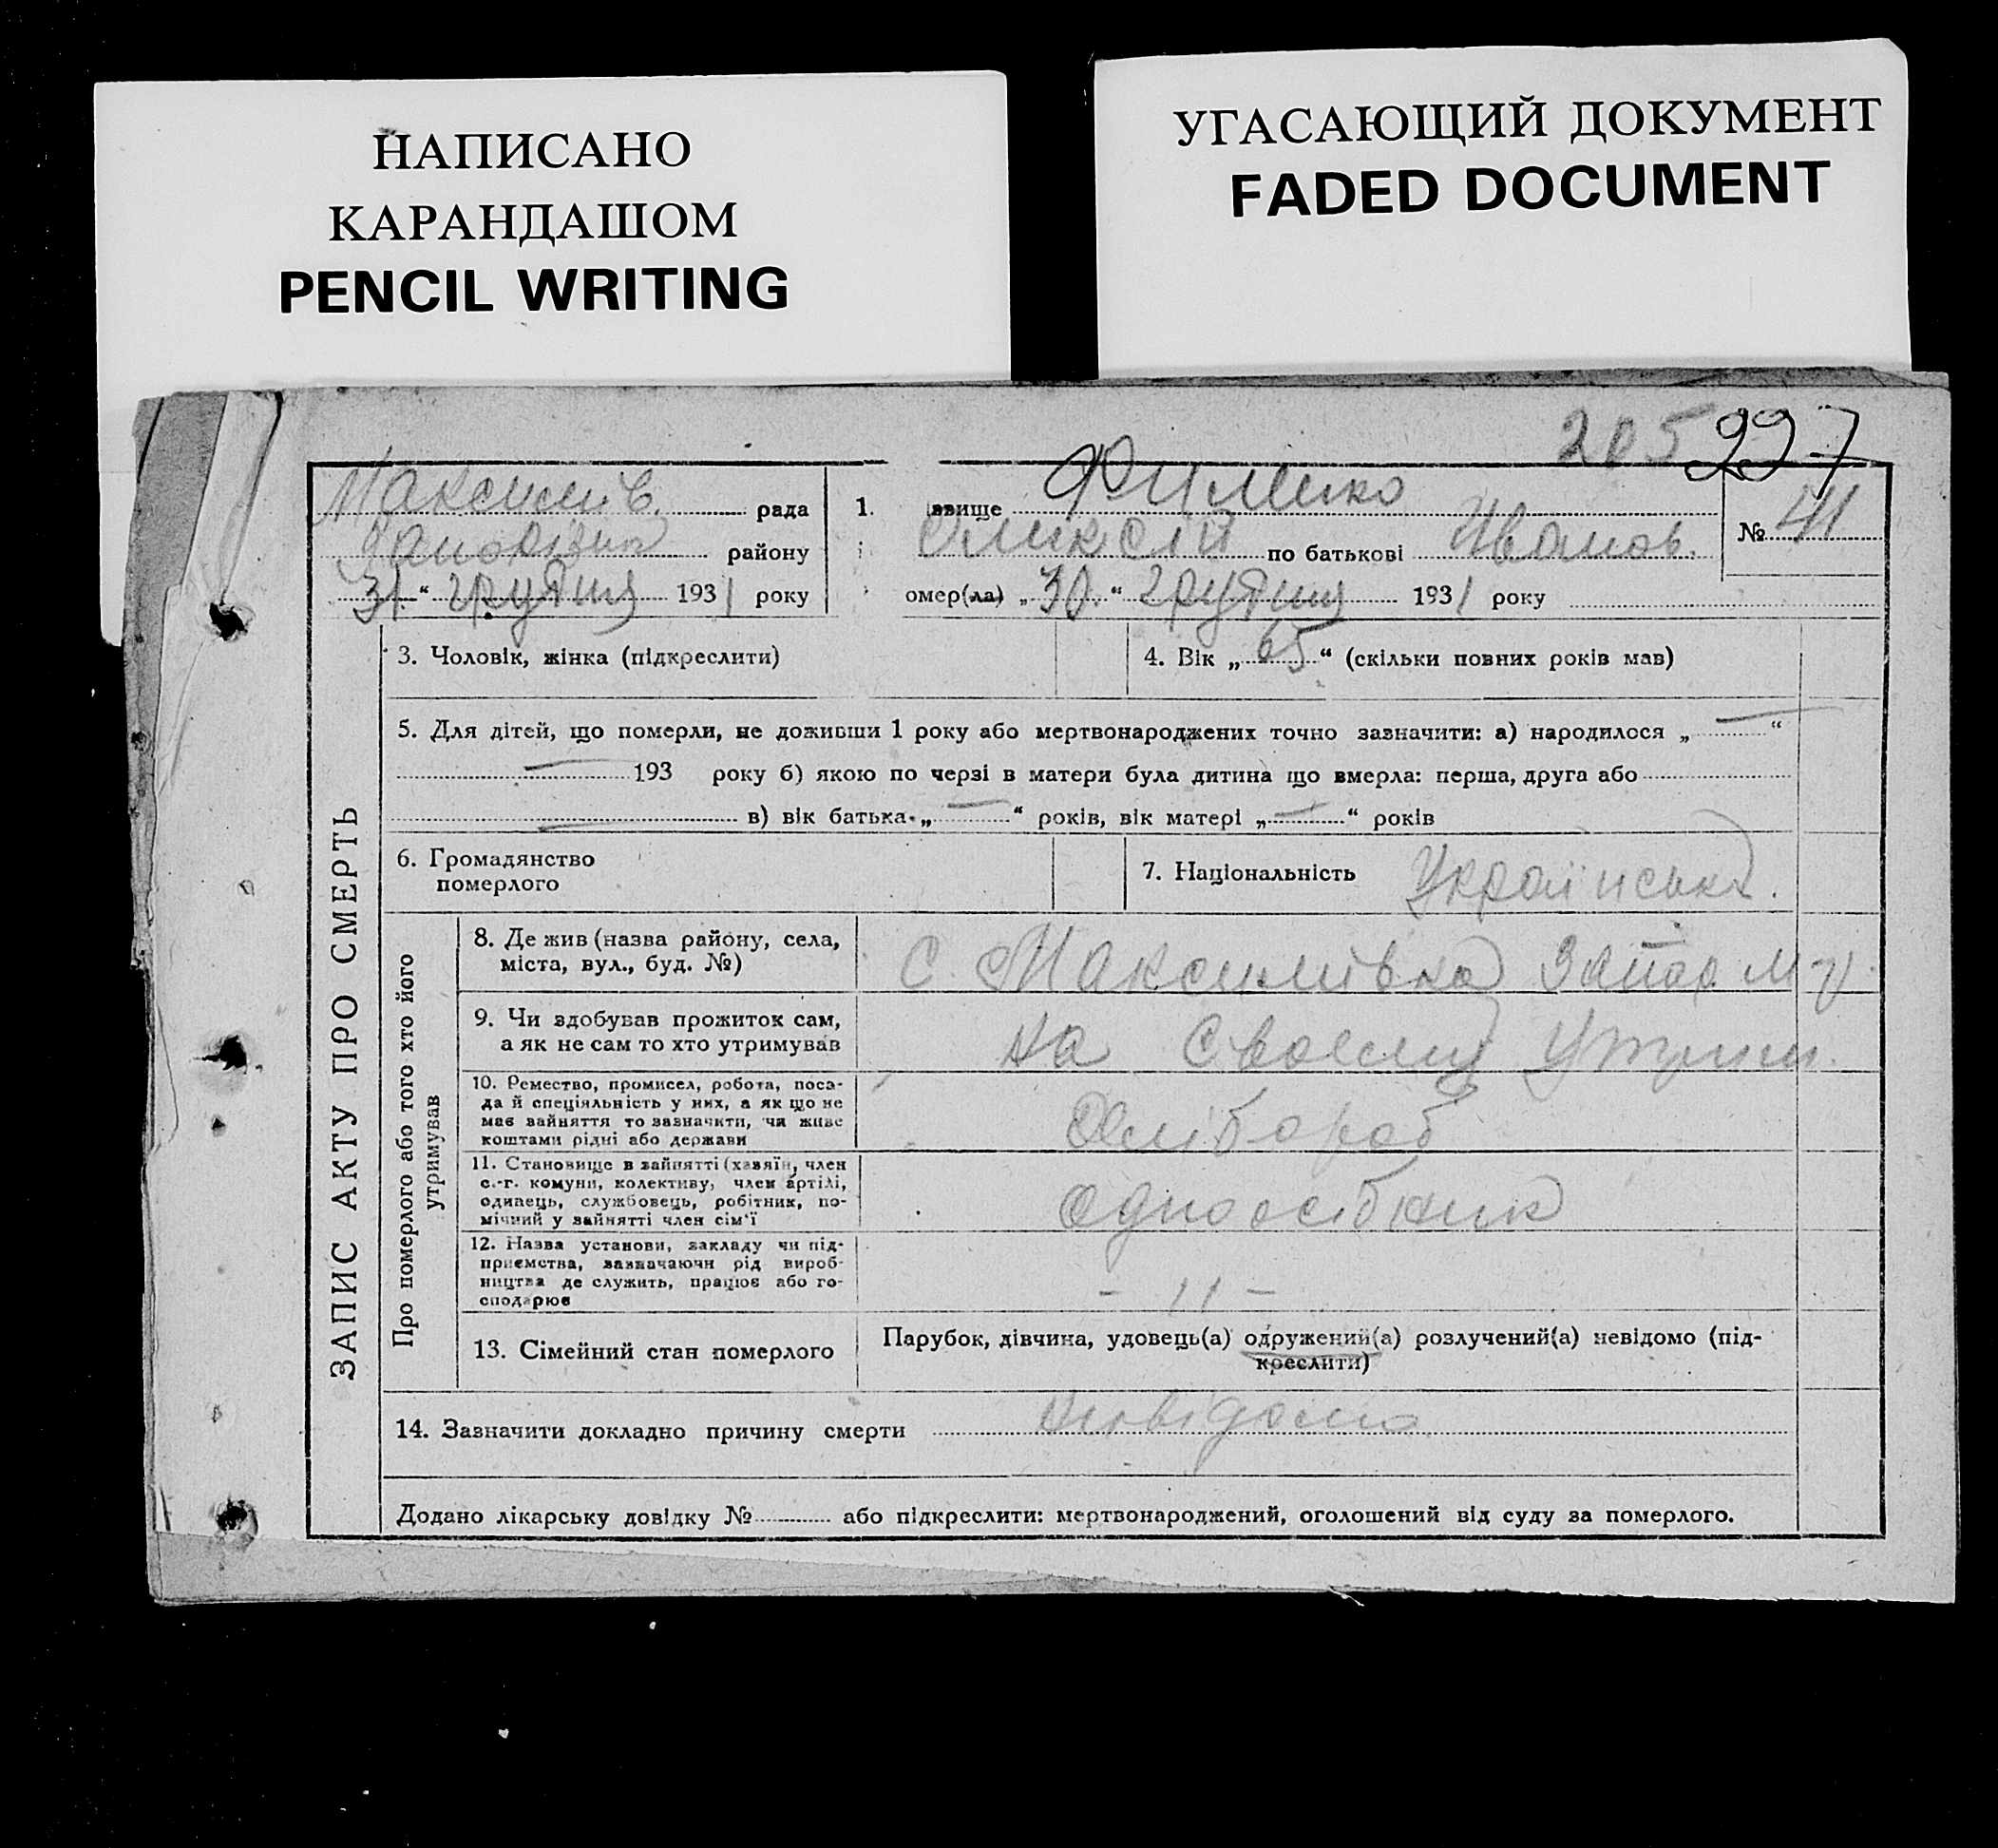 НАПИСАНО
КАРАНДАШОМ
PENCIL WRITING
УГАСАЮЩИЙ ДОКУМЕНТ
FADED DOCUMENT
205 227
Максимів. рада
району
31 “ грудня 1931 року
1. ввище Фименко
Оликсій по батькові Іванов.
омер(ла) „30.“ грудня 1931 року
№ 41
ЗАПИС АКТУ ПРО СМЕРТЬ
3. Чоловік, жінка (підкреслити)
4. Вік „65“ (скільки повних років мав)
5. Для дітей, що померли, не доживши 1 року або мертвонароджених точно зазначити: а) народилося „—“
— 193 року б) якою по черзі в матери була дитина що вмерла: перша, друга або
— в) вік батька „—“ років, вік матері „—“ років
6. Громадянство
померлого
7. Національність Українська.
Про померлого або того хто його
утримував
8. Де жив (назва району, села,
міста, вул., буд. №)
с. Максимівка
9. Чи здобував прожиток сам,
а як не сам то хто утримував
на своєму утрим.
10. Ремество, промисел, робота, поса-
да й спеціяльність у них, а як що не
має зайняття то зазначити, чи живе
коштами рідні або держави
Хлібороб
11. Становище в зайнятті (хазяїн, член
с.-г. комуни, колективу, член артілі,
одинець, службовець, робітник, по-
мічний у зайнятті член сім'ї
одноосібник
12. Назва установи, закладу чи під-
приємства, зазначаючи рід вироб-
ництва де служить, працює або го-
сподарює
- 11 -
13. Сімейний стан померлого
Парубок, дівчина, удовець(а) одружений(а) розлучений(а) невідомо (під-
креслити)
14. Зазначити докладно причину смерти невідомо
Додано лікарську довідку № або підкреслити: мертвонароджений, оголошений від суду за померлого.